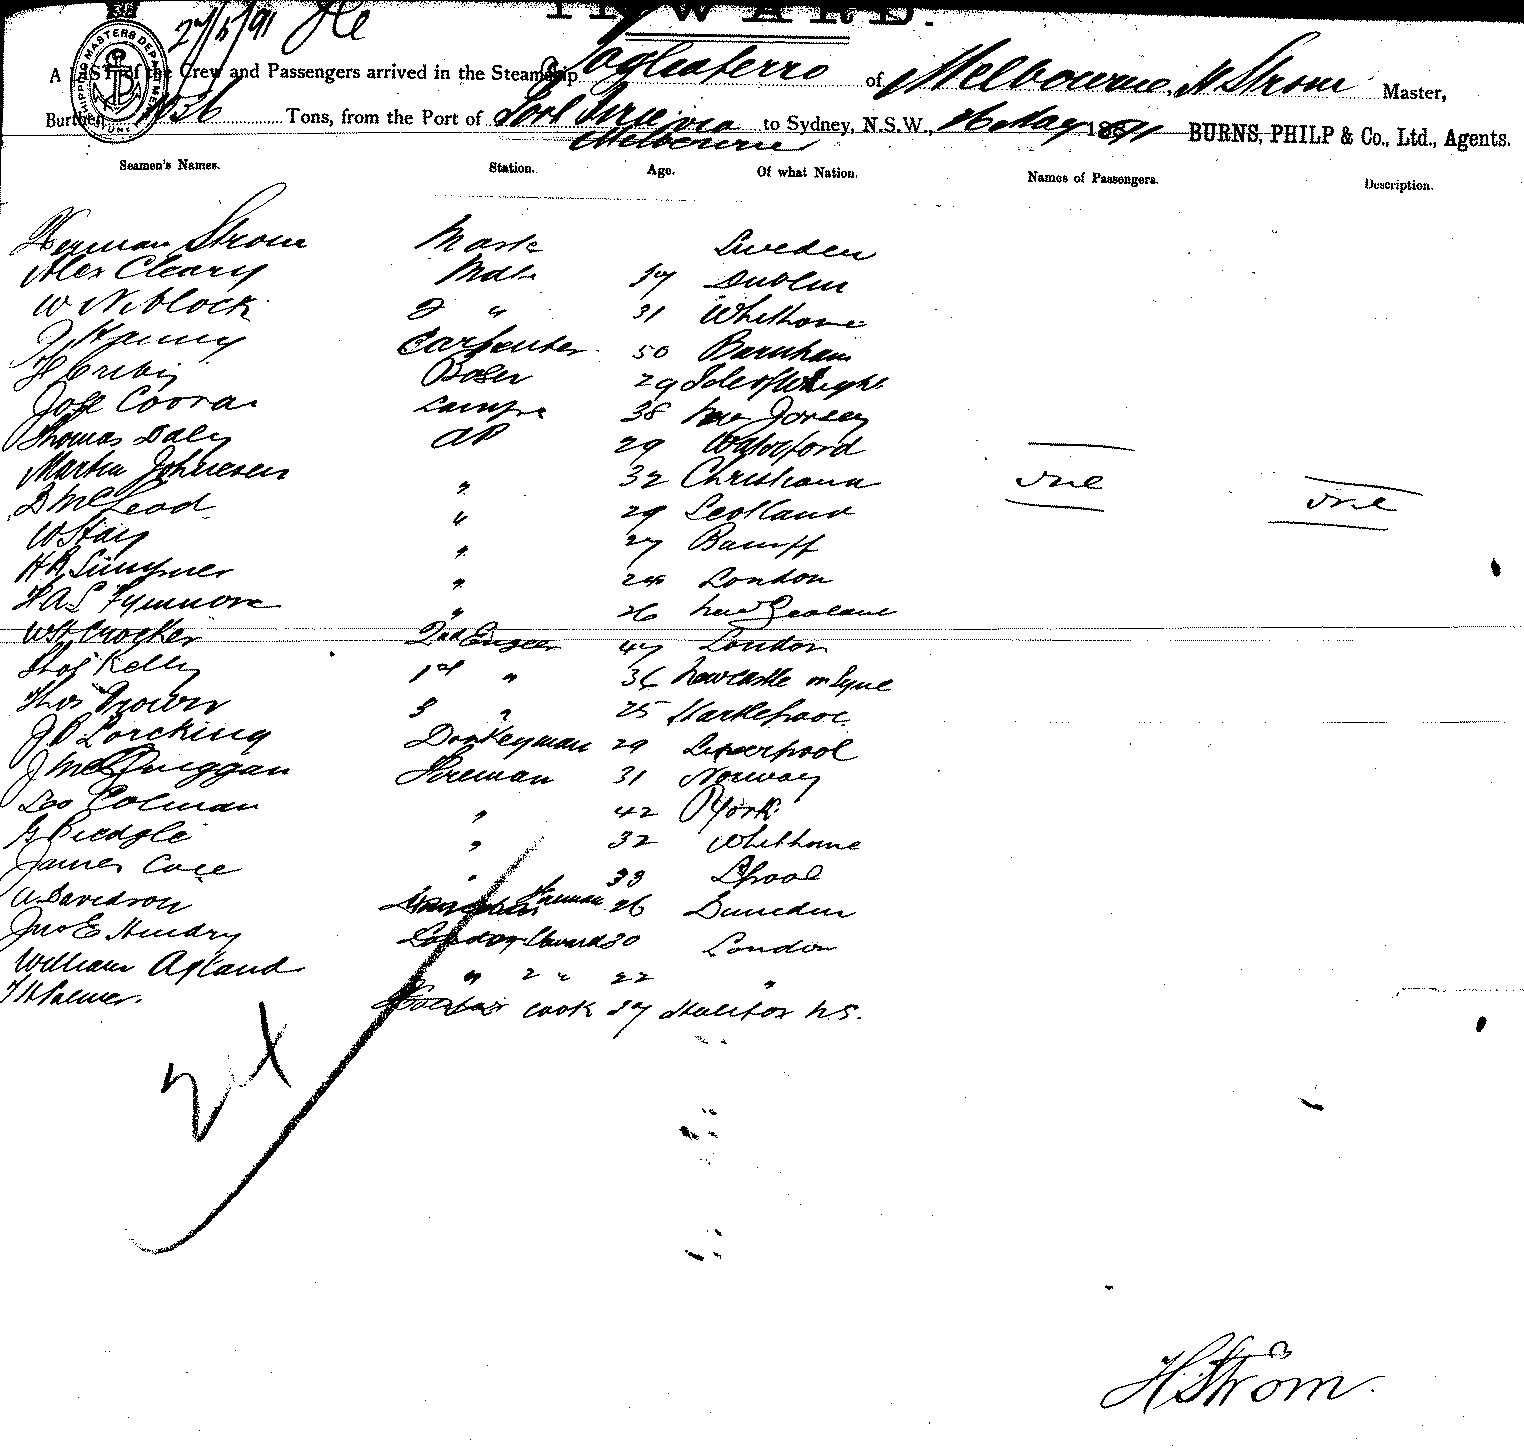 INWARD.
27/5/91
SHIPPING MASTERS DEPARTMENT
A LIST of the Crew and Passengers arrived in the Steamship Tagliaferro of Melbourne, H Strom Master,
Burthen 1036 Tons, from the Port of Port Pirie via Melbourne to Sydney, N.S.W., 26 May 1891 BURNS, PHILP & Co., Ltd., Agents.
Seamen's Names. Station. Age. Of what Nation. Names of Passengers. Description.
Herman Strom Sweden
Alex Cleary Mate 37 Dublin
W Niblock 2 " 31 Whithorne
Carpenter 50 Burnham
Bosn 29 Isle of Wright
Lamps 38 New Jersey
Thomas Daly AB 29 Waterford
Martin Johnesen " 32 Christiana
D McLeod " 29 Scotland
W Hay " 27 Banff
" 24 London
" 26 New Zealand
WH Crocker 2nd Engeer 47 London
Thos Kelly 1st " 36 Newcastle on Tyne
Thos Brown 3 " 25 Hartlepool
Donkeyman 29 Liverpool
Fireman 31 Norway
Geo Colman " 42 York
" 32 Whithorne
James " 33 Lpool
A Davidson Fireman 26 Dunedin
Jno E Hendry Steward 30 London
William " 2 " 22 "
H Palmer cook 37 Halifax N.S.
24
H Ström.